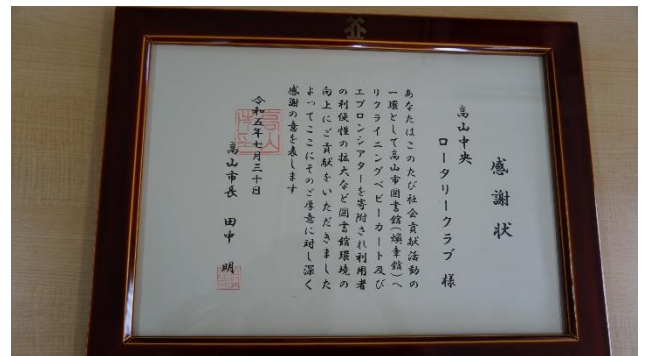 感謝状
高山中央
ロータリークラブ 様
あなたはこのたび社会貢献活動の
一環として高山市図書館(煥章館)へ
リクライニングベビーカート及び
エプロンシアターを寄附され利用者
の利便性の拡大など図書館環境の
向上にご貢献をいただきました
よってここにそのご厚意に対し深く
感謝の意を表します
令和五年七月三十日
高山市長 田中 明